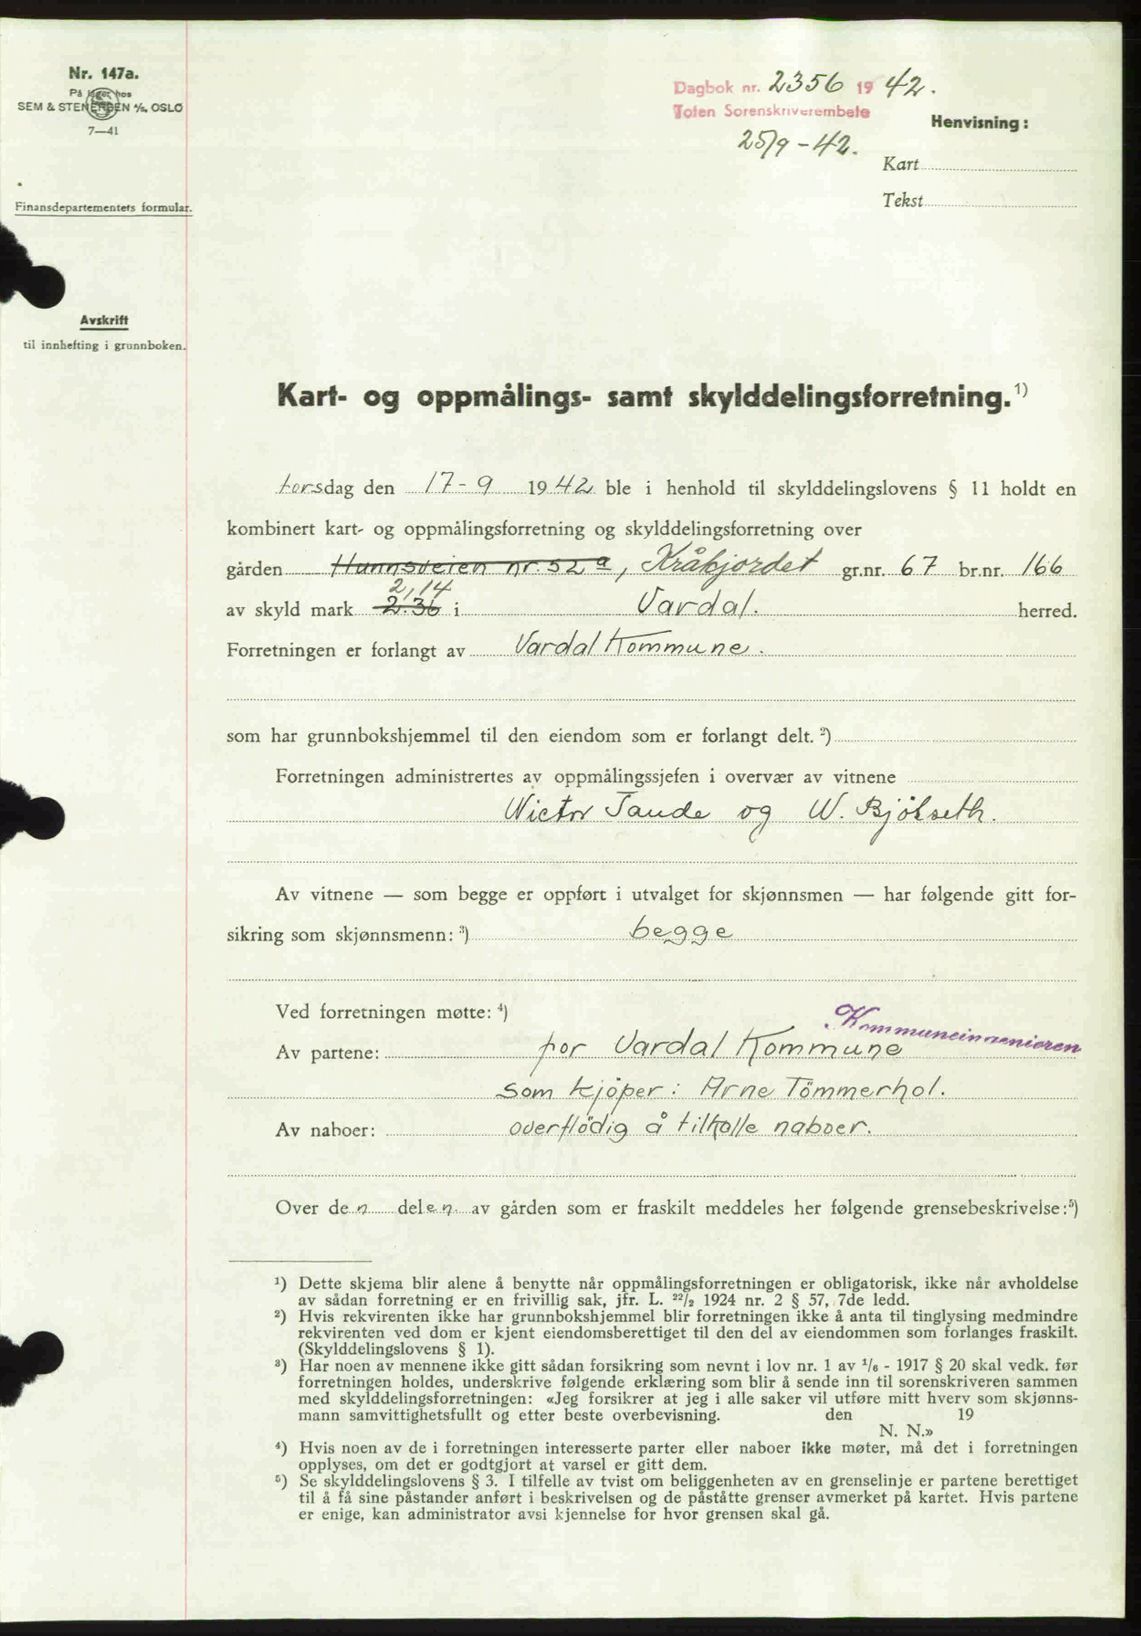 Nr. 147a.
På lager hos
SEM & STENERSEN A/S, OSLO
7—41
Finansdepartementets formular.
Avskrift
til innhefting i grunnboken.
Dagbok nr. 2356 19 42.
Toten Sorenskriverembete
25/9 - 42.
Henvisning:
Kart
Tekst
Kart- og oppmålings- samt skylddelingsforretning.¹)
torsdag den 17-9 1942 ble i henhold til skylddelingslovens § 11 holdt en
kombinert kart- og oppmålingsforretning og skylddelingsforretning over
gården Hunnsveien nr. 52 a, Kråkjordet gr.nr. 67 br.nr. 166
2,14
av skyld mark 2.36 i Vardal. herred.
Forretningen er forlangt av Vardal Kommune.
som har grunnbokshjemmel til den eiendom som er forlangt delt.²)
Forretningen administrertes av oppmålingssjefen i overvær av vitnene
Wictor Taude og W. Bjölseth.
Av vitnene — som begge er oppført i utvalget for skjønnsmen — har følgende gitt for-
sikring som skjønnsmenn:³) begge
Ved forretningen møtte:⁴)
Kommuneingeniøren
Av partene: for Vardal Kommune
som kjöper: Arne Tömmerhol.
Av naboer: overflödig å tilkalle naboer.
Over den delen av gården som er fraskilt meddeles her følgende grensebeskrivelse:⁵)
¹) Dette skjema blir alene å benytte når oppmålingsforretningen er obligatorisk, ikke når avholdelse
av sådan forretning er en frivillig sak, jfr. L. ²²/₂ 1924 nr. 2 § 57, 7de ledd.
²) Hvis rekvirenten ikke har grunnbokshjemmel blir forretningen ikke å anta til tinglysing medmindre
rekvirenten ved dom er kjent eiendomsberettiget til den del av eiendommen som forlanges fraskilt.
(Skylddelingslovens § 1).
³) Har noen av mennene ikke gitt sådan forsikring som nevnt i lov nr. 1 av ¹/₆ - 1917 § 20 skal vedk. før
forretningen holdes, underskrive følgende erklæring som blir å sende inn til sorenskriveren sammen
med skylddelingsforretningen: «Jeg forsikrer at jeg i alle saker vil utføre mitt hverv som skjønns-
mann samvittighetsfullt og etter beste overbevisning. den 19
N. N.»
⁴) Hvis noen av de i forretningen interesserte parter eller naboer ikke møter, må det i forretningen
opplyses, om det er godtgjort at varsel er gitt dem.
⁵) Se skylddelingslovens § 3. I tilfelle av tvist om beliggenheten av en grenselinje er partene berettiget
til å få sine påstander anført i beskrivelsen og de påståtte grenser avmerket på kartet. Hvis partene
er enige, kan administrator avsi kjennelse for hvor grensen skal gå.